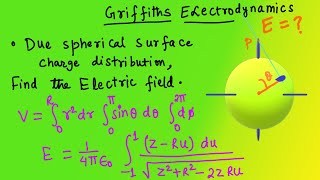 Griffiths Electrodynamics
E = ?
• Due spherical surface
charge distribution,
Find the Electric field.
P
θ
V = ∫₀ᴿ r²dr ∫₀^π sinθ dθ ∫₀^2π dϕ
E = 1/4πϵ₀ ∫₋₁¹ (Z-Ru) du / √(Z²+R²-2ZRu)